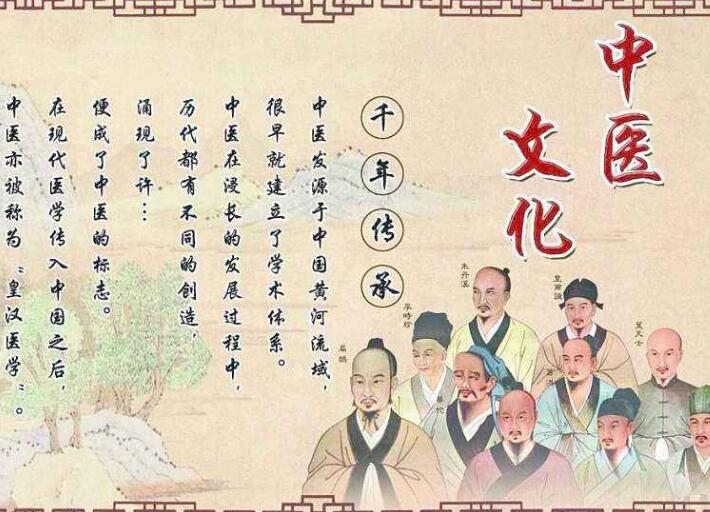 中医
文化
千年传承
中医发源于中国黄河流域,
很早就建立了学术体系。
中医在浸长的发展过程中,
历代都有不同的创造,
涌现了许…
便成了中医的标志。
在现代医学传入中国之后,
中医亦被称为“皇汉医学”。
葉天士
皇甫謐
葛洪
朱丹溪
李時珍
華佗
扁鵲